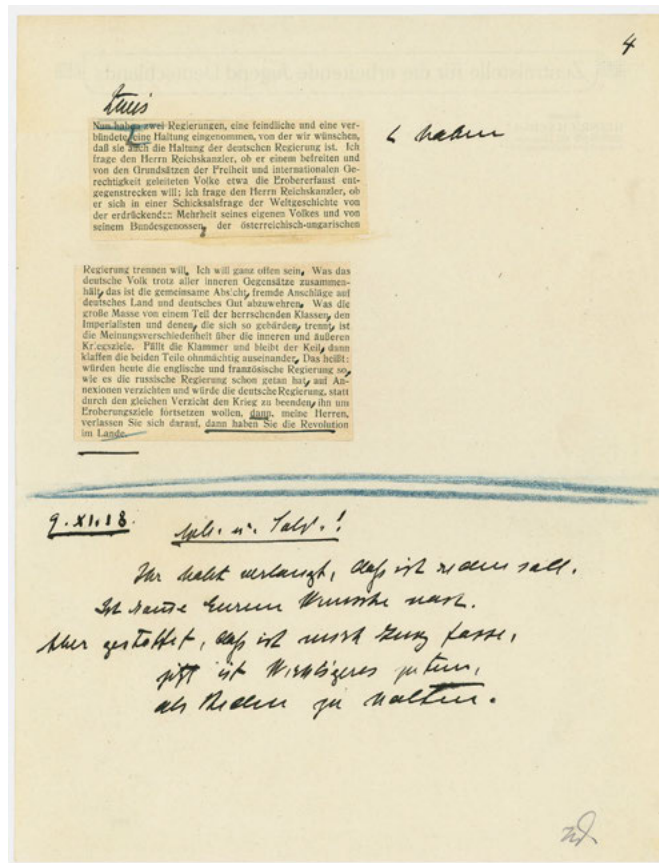 4
Nun haben zwei Regierungen, eine feindliche und eine ver-
bündete, eine Haltung eingenommen, von der wir wünschen,
daß sie auch die Haltung der deutschen Regierung ist. Ich
frage den Herrn Reichskanzler, ob er einem befreiten und
von den Grundsätzen der Freiheit und internationalen Ge-
rechtigkeit geleiteten Volke etwa die Erobererfaust ent-
gegenstrecken will; ich frage den Herrn Reichskanzler, ob
er sich in einer Schicksalsfrage der Weltgeschichte von
der erdrückenden Mehrheit seines eigenen Volkes und von
seinem Bundesgenossen, der österreichisch-ungarischen
haben
Regierung trennen will. Ich will ganz offen sein. Was das
deutsche Volk trotz aller inneren Gegensätze zusammen-
hält, das ist die gemeinsame Absicht, fremde Anschläge auf
deutsches Land und deutsches Gut abzuwehren. Was die
große Masse von einem Teil der herrschenden Klassen, den
Imperialisten und denen, die sich so gebärden, trennt, ist
die Meinungsverschiedenheit über die inneren und äußeren
Kriegsziele. Fällt die Klammer und bleibt der Keil, dann
klaffen die beiden Teile ohnmächtig auseinander. Das heißt:
würden heute die englische und französische Regierung so,
wie es die russische Regierung schon getan hat, auf An-
nexionen verzichten und würde die deutsche Regierung, statt
durch den gleichen Verzicht den Krieg zu beenden, ihn um
Eroberungsziele fortsetzen wollen, dann, meine Herren,
verlassen Sie sich darauf, dann haben Sie die Revolution
im Lande.
9.XI.18.
Arb. u. Sold.!
Ihr habt verlangt, daß ich reden soll.
Ich komme Eurem Wunsche nach.
Aber gestattet, daß ich mich kurz fasse,
jetzt ist Wichtigeres zu tun,
als Reden zu halten.